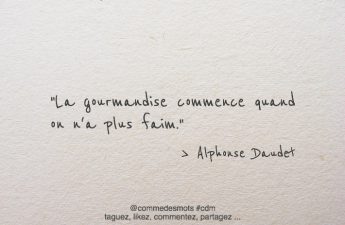 "La gourmandise commence quand
on n'a plus faim."
> Alphonse Daudet
@commedesmots #cdm
taguez, likez, commentez, partagez ...